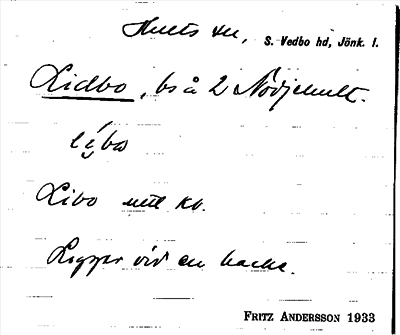 Hults sn, S. Vedbo hd, Jönk. l.
Lidbo, bs å 2 Nödjehult.
Libo enl kb.
Ligger vid en backe.
FRITZ ANDERSSON 1933